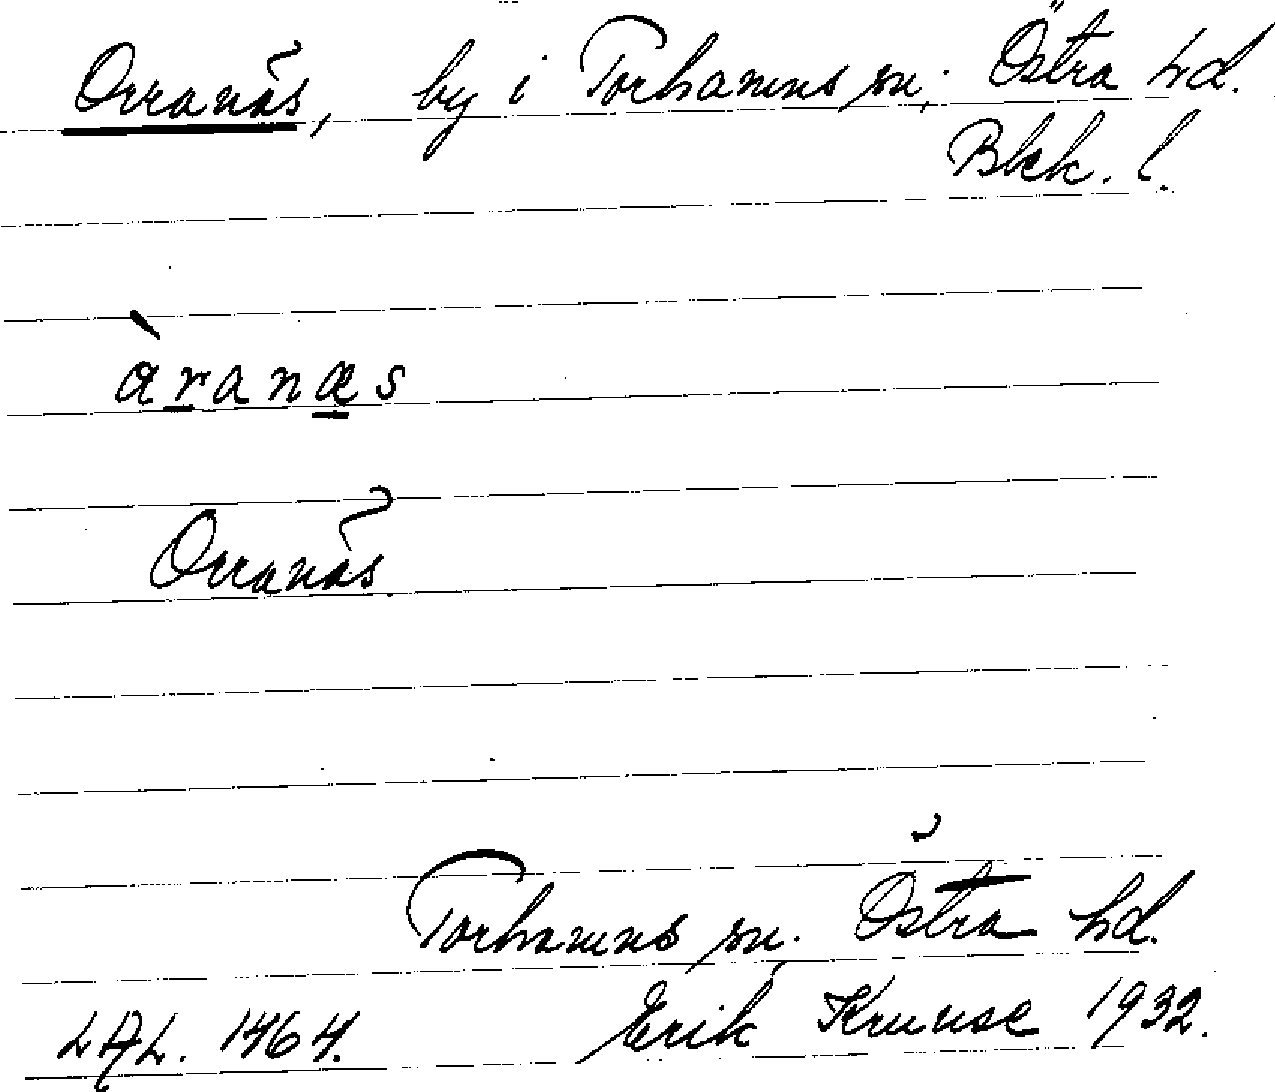 Orranäs, by i Torhamns sn, Östra hd.
Blek. l.
àranæs
Orranäs
Torhamns sn. Östra hd.
LAL. 1464. Erik Kruuse 1932.